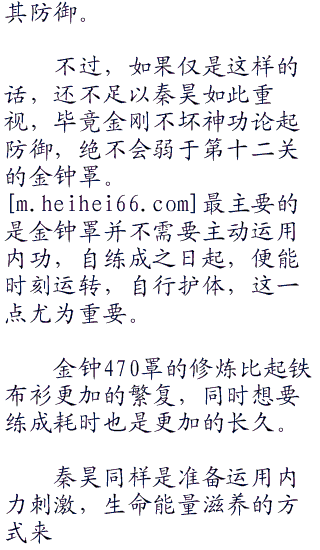 其防御。
不过，如果仅是这样的
话，还不足以秦昊如此重
视，毕竟金刚不坏神功论起
防御，绝不会弱于第十二关
的金钟罩。
[m.heihei66.com]最主要的
是金钟罩并不需要主动运用
内功，自练成之日起，便能
时刻运转，自行护体，这一
点尤为重要。
金钟470罩的修炼比起铁
布衫更加的繁复，同时想要
练成耗时也是更加的长久。
秦昊同样是准备运用内
力刺激，生命能量滋养的方
式来